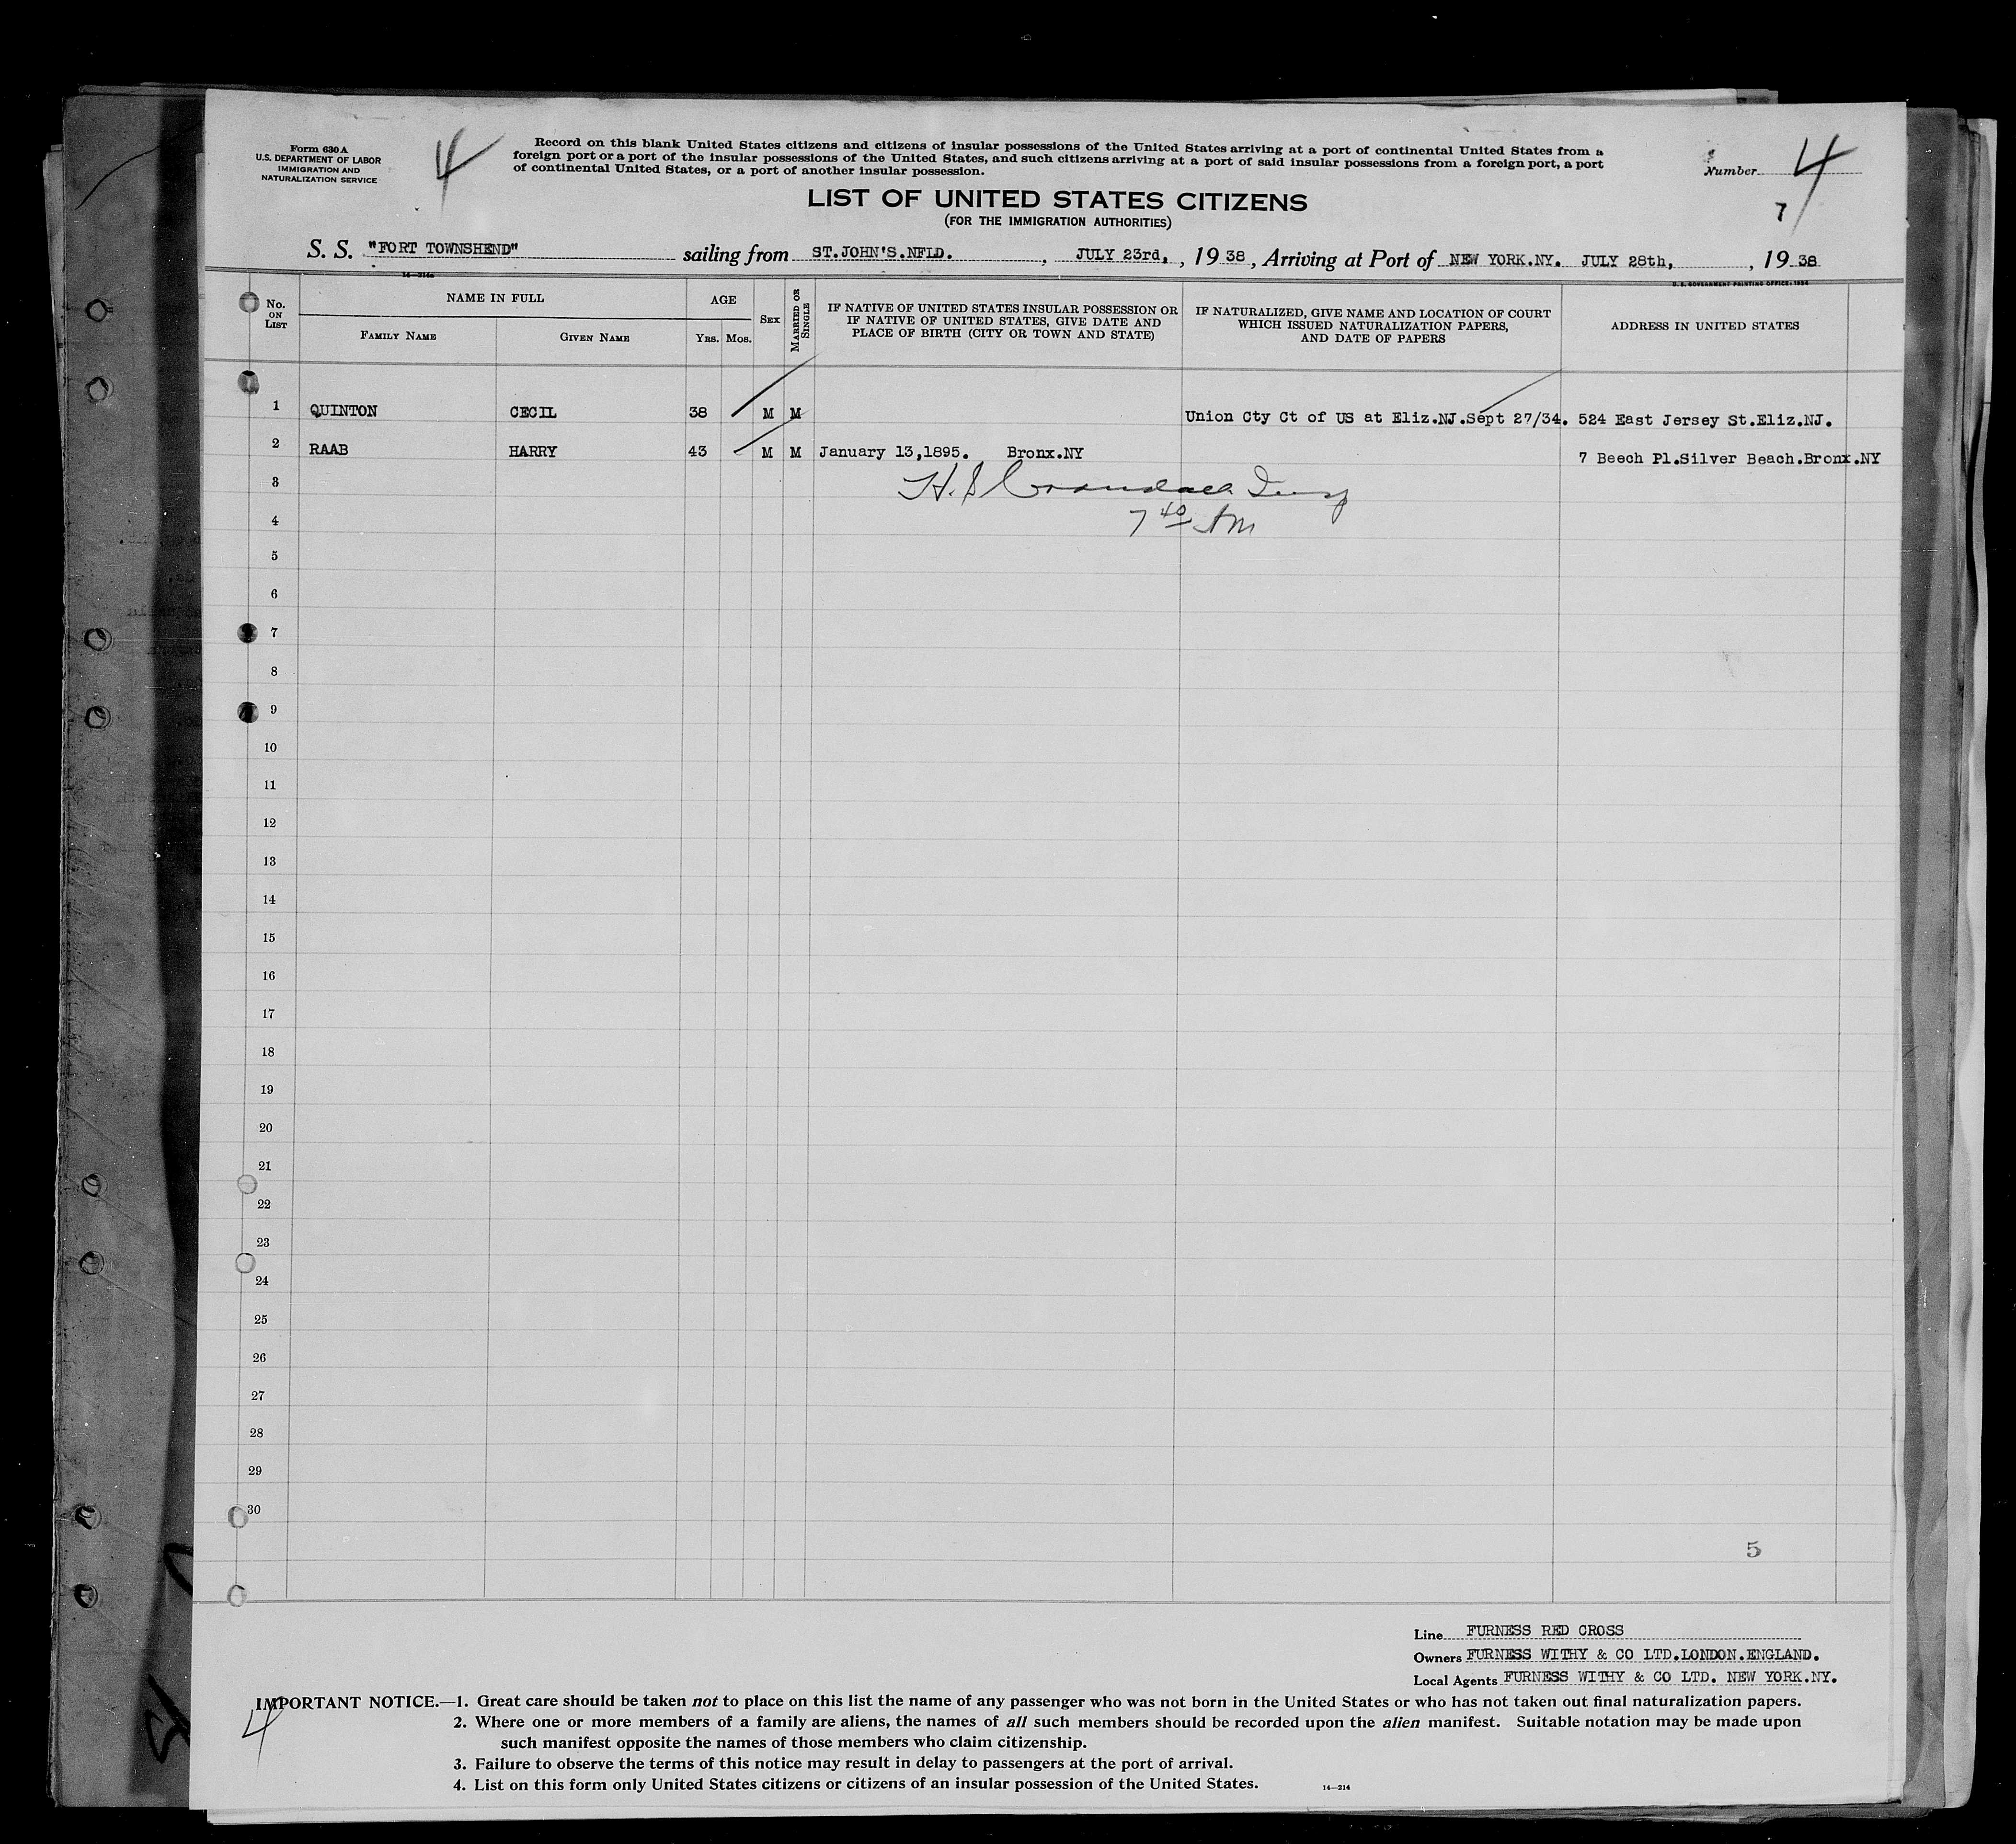 Form 630 A
U.S. DEPARTMENT OF LABOR
IMMIGRATION AND
NATURALIZATION SERVICE
4
Record on this blank United States citizens and citizens of insular possessions of the United States arriving at a port of continental United States from a
foreign port or a port of the insular possessions of the United States, and such citizens arriving at a port of said insular possessions from a foreign port, a port
of continental United States, or a port of another insular possession.
Number 4
7
LIST OF UNITED STATES CITIZENS
(FOR THE IMMIGRATION AUTHORITIES)
S. S. "FORT TOWNSHEND" sailing from ST.JOHN'S.NFLD. , JULY 23rd, , 19 38 , Arriving at Port of NEW YORK.NY. JULY 28th, , 19 38
14—214a
U. S. GOVERNMENT PRINTING OFFICE: 1934
No. ON LIST
NAME IN FULL
FAMILY NAME
GIVEN NAME
AGE
YRS. MOS.
SEX
MARRIED OR SINGLE
IF NATIVE OF UNITED STATES INSULAR POSSESSION OR
IF NATIVE OF UNITED STATES, GIVE DATE AND
PLACE OF BIRTH (CITY OR TOWN AND STATE)
IF NATURALIZED, GIVE NAME AND LOCATION OF COURT
WHICH ISSUED NATURALIZATION PAPERS,
AND DATE OF PAPERS
ADDRESS IN UNITED STATES
1 QUINTON CECIL 38 M M Union Cty Ct of US at Eliz.NJ.Sept 27/34. 524 East Jersey St.Eliz.NJ.
2 RAAB HARRY 43 M M January 13,1895. Bronx.NY 7 Beech Pl.Silver Beach.Bronx.NY
3 H. S. Crandall Insp
4 7 40 AM
5
6
7
8
9
10
11
12
13
14
15
16
17
18
19
20
21
22
23
24
25
26
27
28
29
30
5
Line FURNESS RED CROSS
Owners FURNESS WITHY & CO LTD.LONDON.ENGLAND.
Local Agents FURNESS WITHY & CO LTD. NEW YORK.NY.
IMPORTANT NOTICE.—1. Great care should be taken not to place on this list the name of any passenger who was not born in the United States or who has not taken out final naturalization papers.
2. Where one or more members of a family are aliens, the names of all such members should be recorded upon the alien manifest. Suitable notation may be made upon
such manifest opposite the names of those members who claim citizenship.
3. Failure to observe the terms of this notice may result in delay to passengers at the port of arrival.
4. List on this form only United States citizens or citizens of an insular possession of the United States.
14—214
4